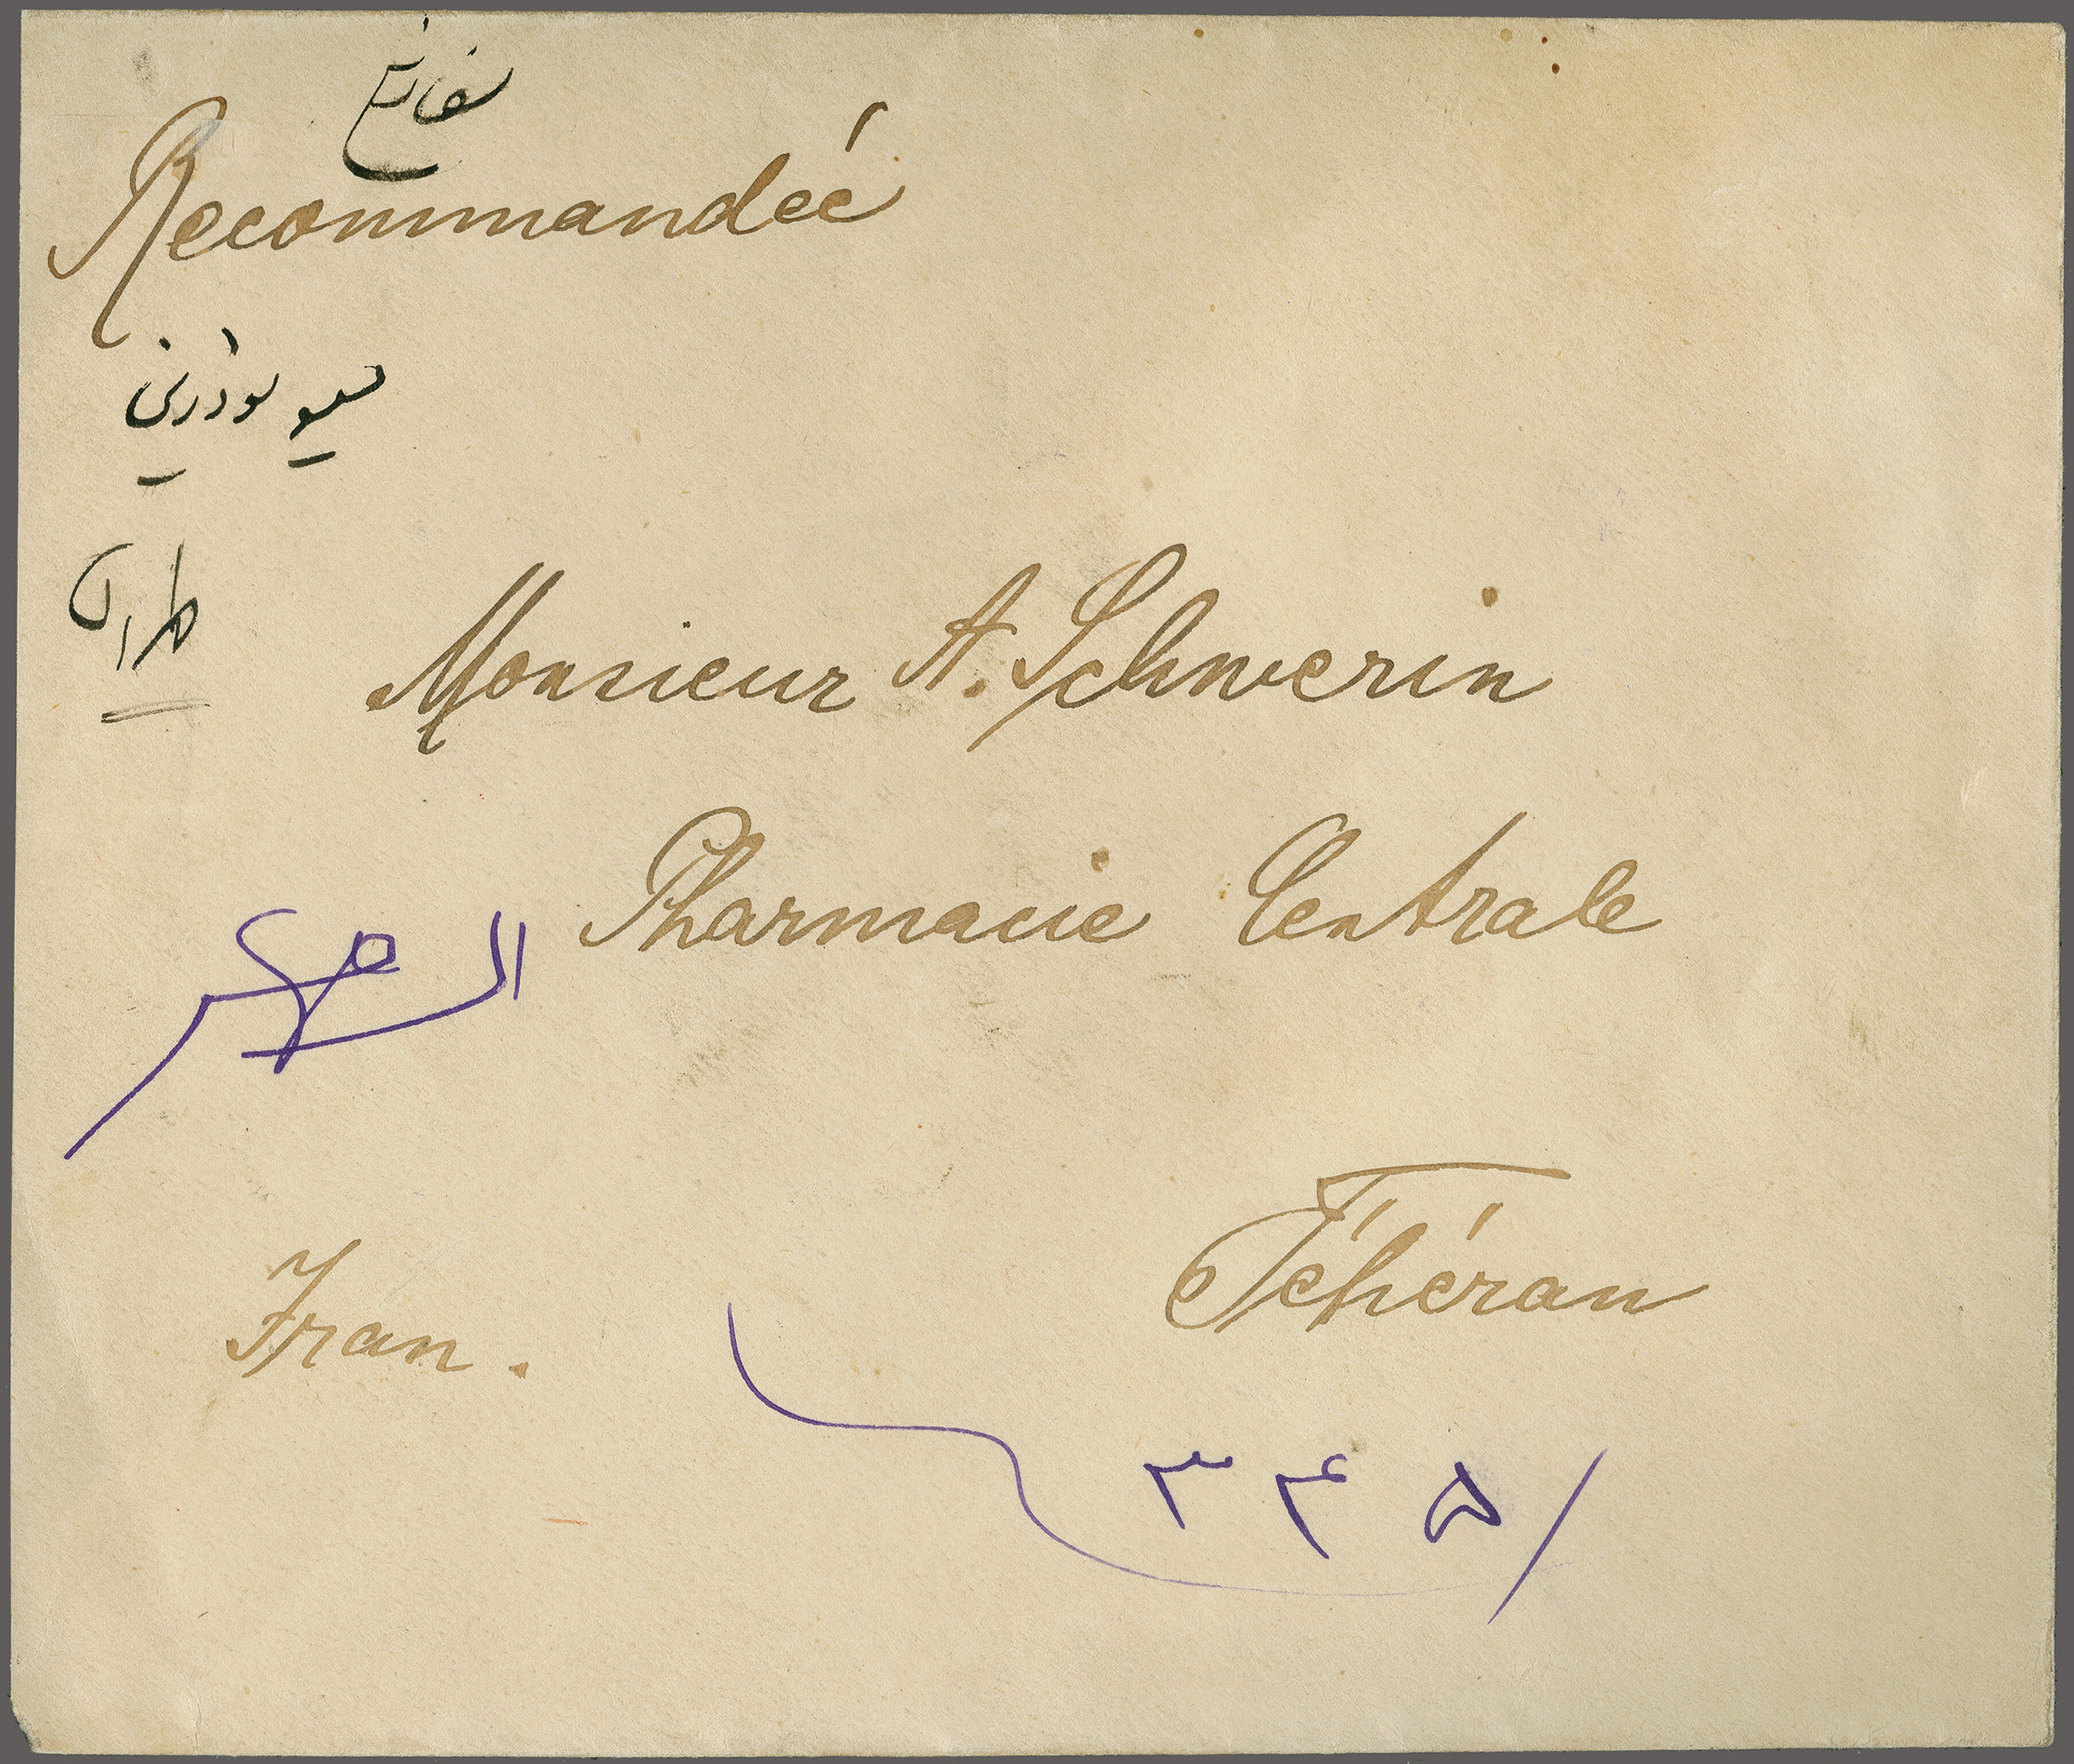 سفارشی
Recommandée
مسیو
طهران
Monsieur A. Schwerin
Pharmacie Centrale
Téhéran
Iran.
۳۴۵/